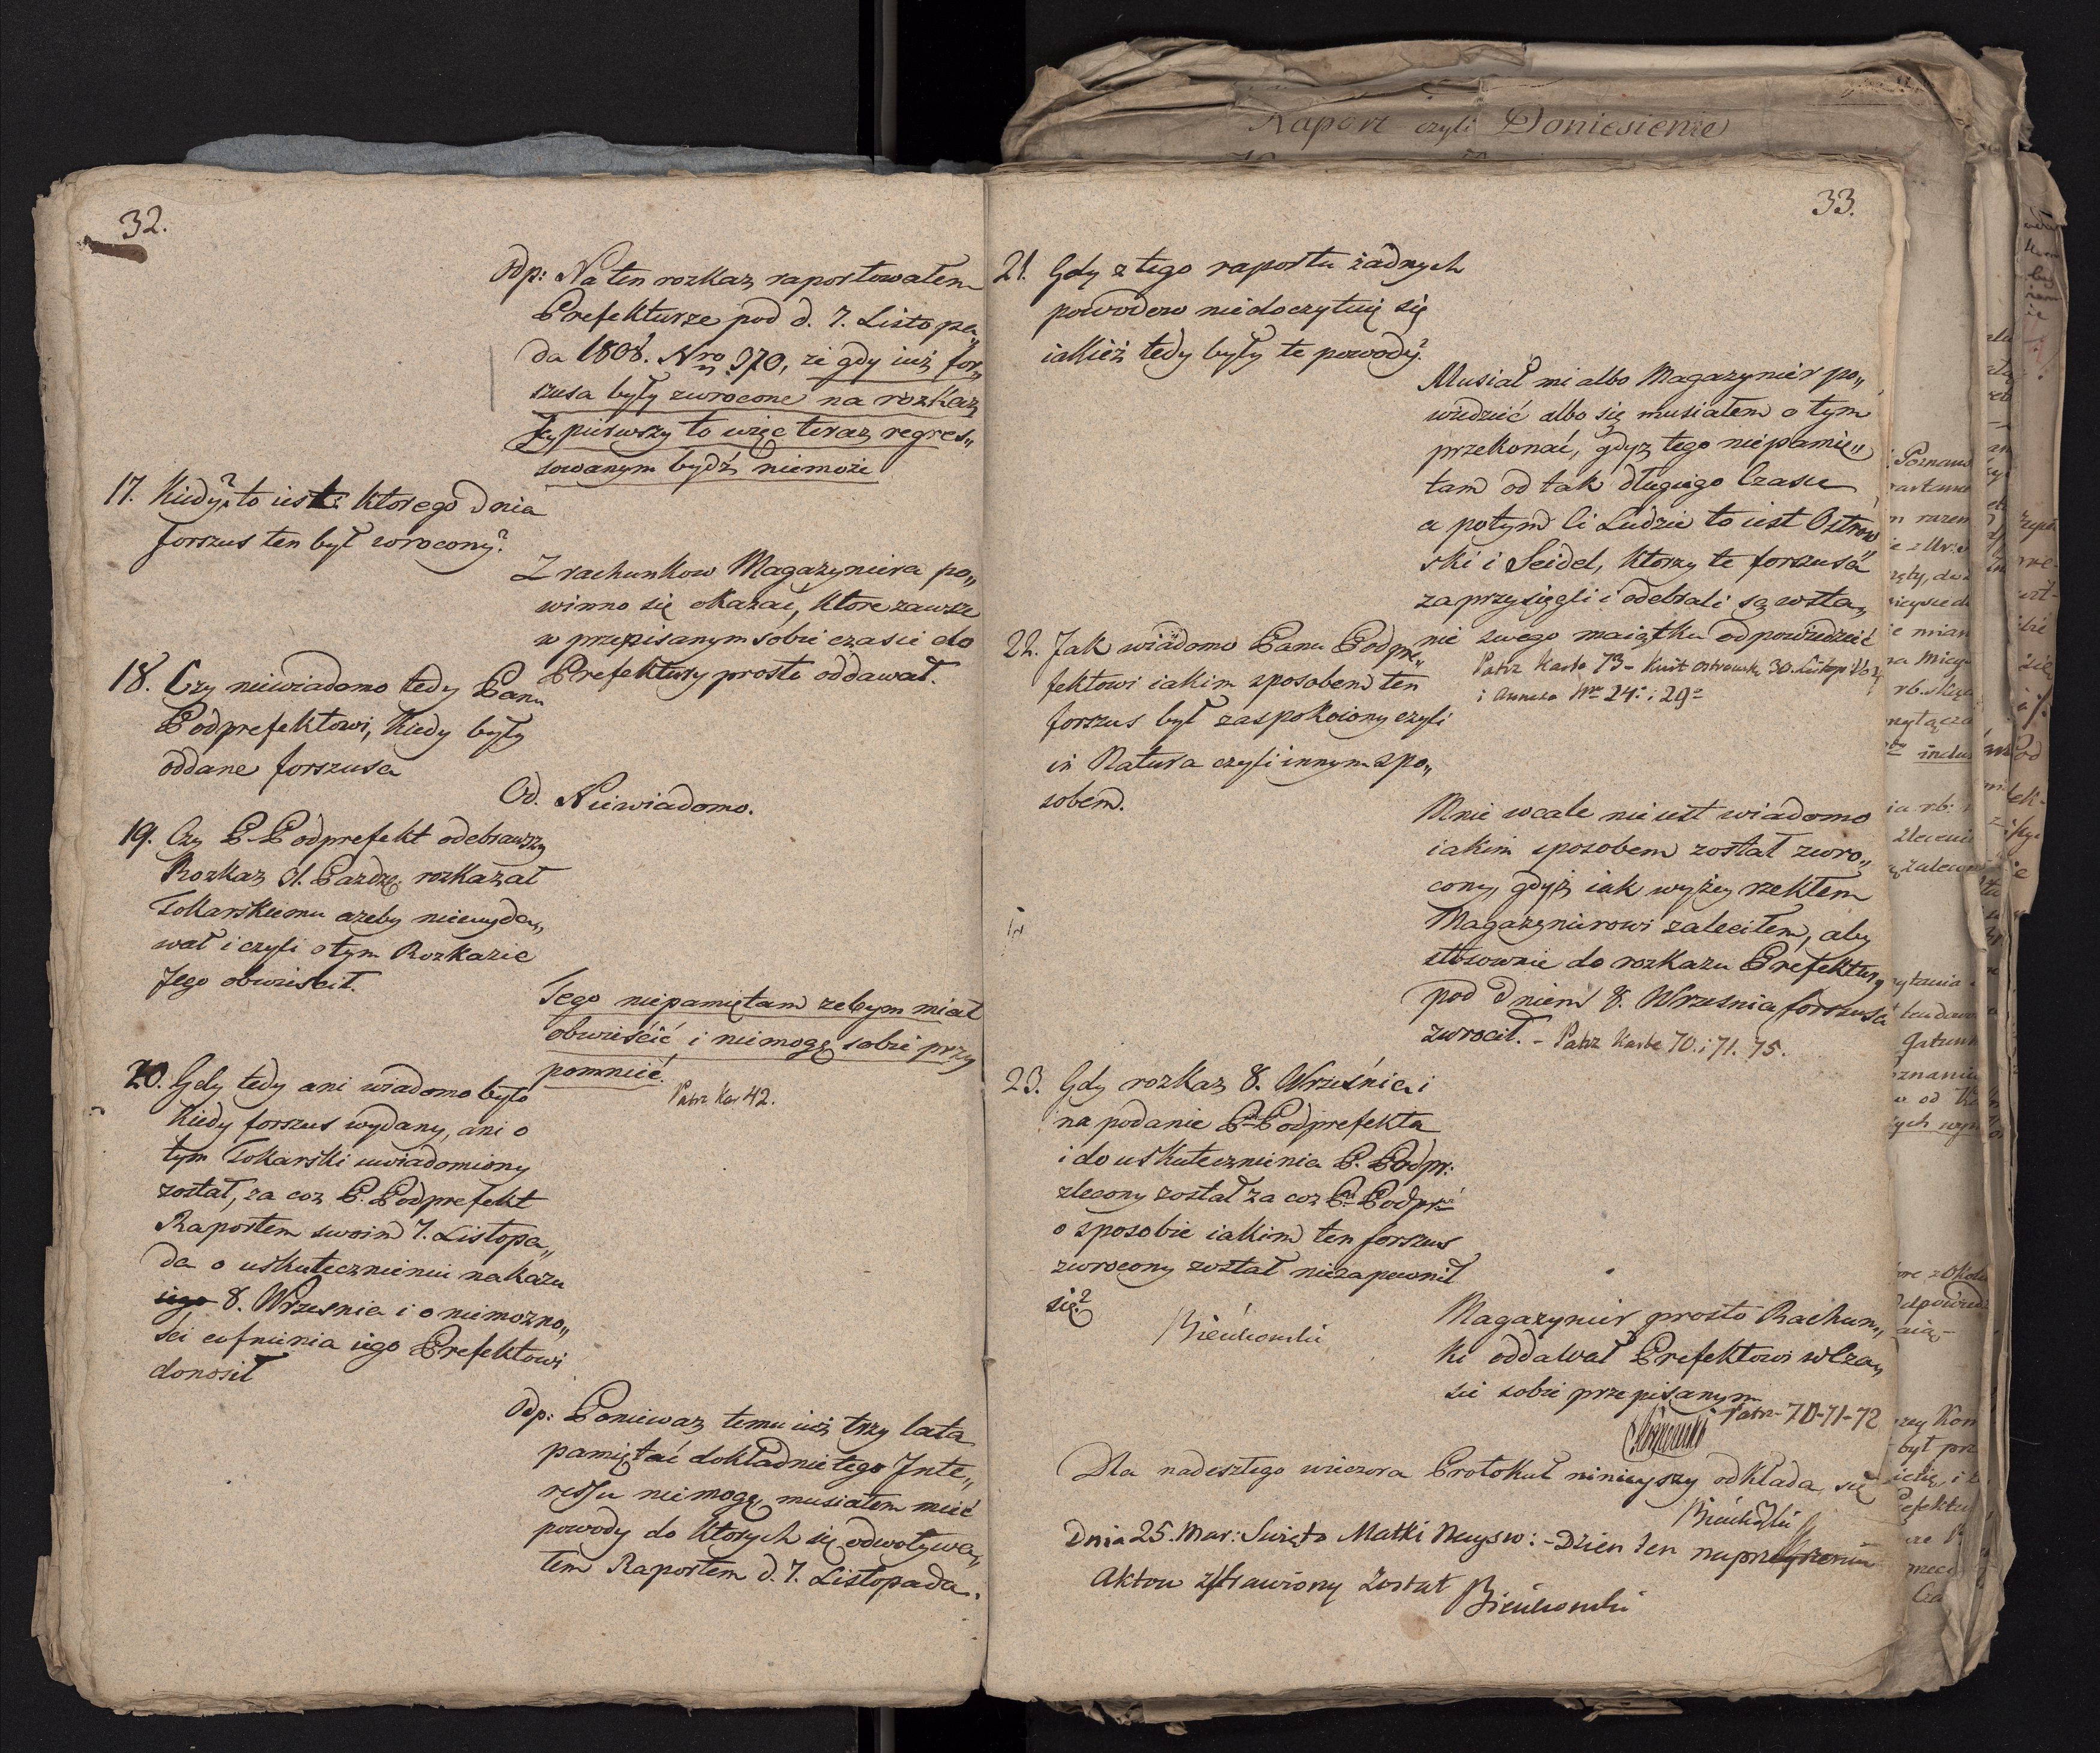 32.
Odp: Na ten rozkaz raportowałem
Prefekturze pod d. 7. Listopa„
da 1808. Nro 370, że gdy iuż for„
szusa były zwrocone na rozkaz
pierwszy to więc teraz regres„
sowanym bydź niemoże
17. Kiedy? to iest: ktorego dnia
forszus ten był zwrocony?
Z rachunkow Magazyniera po„
winno się okazać, ktore zawsze
w przepisanym sobie czasie do
Prefektury prosto oddawał.
18. Czy niewiadomo tedy Panu
Podprefektowi, kiedy były
oddane forszusa
Od. Niewiadomo.
19. Czy P. Podprefekt odebrawszy
Rozkaz d. Paźdz. rozkazał
Tokarskiemu azeby niewyda„
wał i czyli o tym Rozkazie
Jego obwieścił.
Tego niepamiętam zebym miał
obwieścić i niemogę sobie przy
pomnieć.
Patrz Kar 42.
20. Gdy tedy ani wiadomo było
kiedy forszus wydany, ani o
tym Tokarski uwiadomiony
został, za coz P. Podprefekt
Raportem swoim 7. Listopa„
da o uskutecznieniu nakazu
iego 8. Wrzesnia i o niemozno„
sci cofnienia iego Prefektowi
donosił
Odp: Poniewaz temu iuż trzy lata
pamiętać dokładnie tego Inte„
ressu niemogę, musiałem mieć
powody do ktorych się odwoływa„
łem Raportem d. 7. Listopada.
33.
21. Gdy z tego raportu żadnych
powodow niedoczytuię się
iakież tedy były te powody?
Musiał mi albo Magazynier po„
wiedzieć albo się musiałem o tym
przekonać, gdyz tego niepamię„
tam od tak długiego Czasu
a potym Ci Ludzie to iest Ostrow
ski i Seidel, ktorzy te forszusa
zaprzysięgli i odebrali są w sta„
nie swego maiątku odpowiedzieć
Patrz Karta 73 - Kwit Ostrowsk. 30. Listop
i Annexa Nro 24. i 29
22. Jak wiadomo Panu Podpre„
fektowi iakim sposobem ten
forszus był zaspokoiony czyli
in Natura czyli innym spo„
sobem.
Mnie wcale nie iest wiadomo
iakim sposobem został zwro„
cony, gdyż iak wyżey rzekłem
Magazynierowi zaleciłem, aby
stosownie do rozkazu Prefektury
pod dniem 8. Wrzesnia forszusa
zwrocił. - Patrz Karta 70. i 71. 75.
23. Gdy rozkaz 8. Wrześnie i
na podanie P. Podprefekta
i do uskutecznienia P. Podpr:
zlecony został za coz P. Podpr:
o sposobie iakim ten forszus
zwrocony został niezapewnił
się?
Bieńkowski
Magazynier prosto Rachun„
ki oddawał Prefektowi w Cza„
sie sobie przepisanym
Patrz - 70-71-72
Dla nadeszłego wieczora Protokuł ninieyszy odkłada się
Bieńkowski
Dnia 25. Mar: Swięto Matki Nayśw: - Dzien ten na przeyrzeniu
Aktow strawiony został
Bieńkowski
Raport czyli Doniesienie